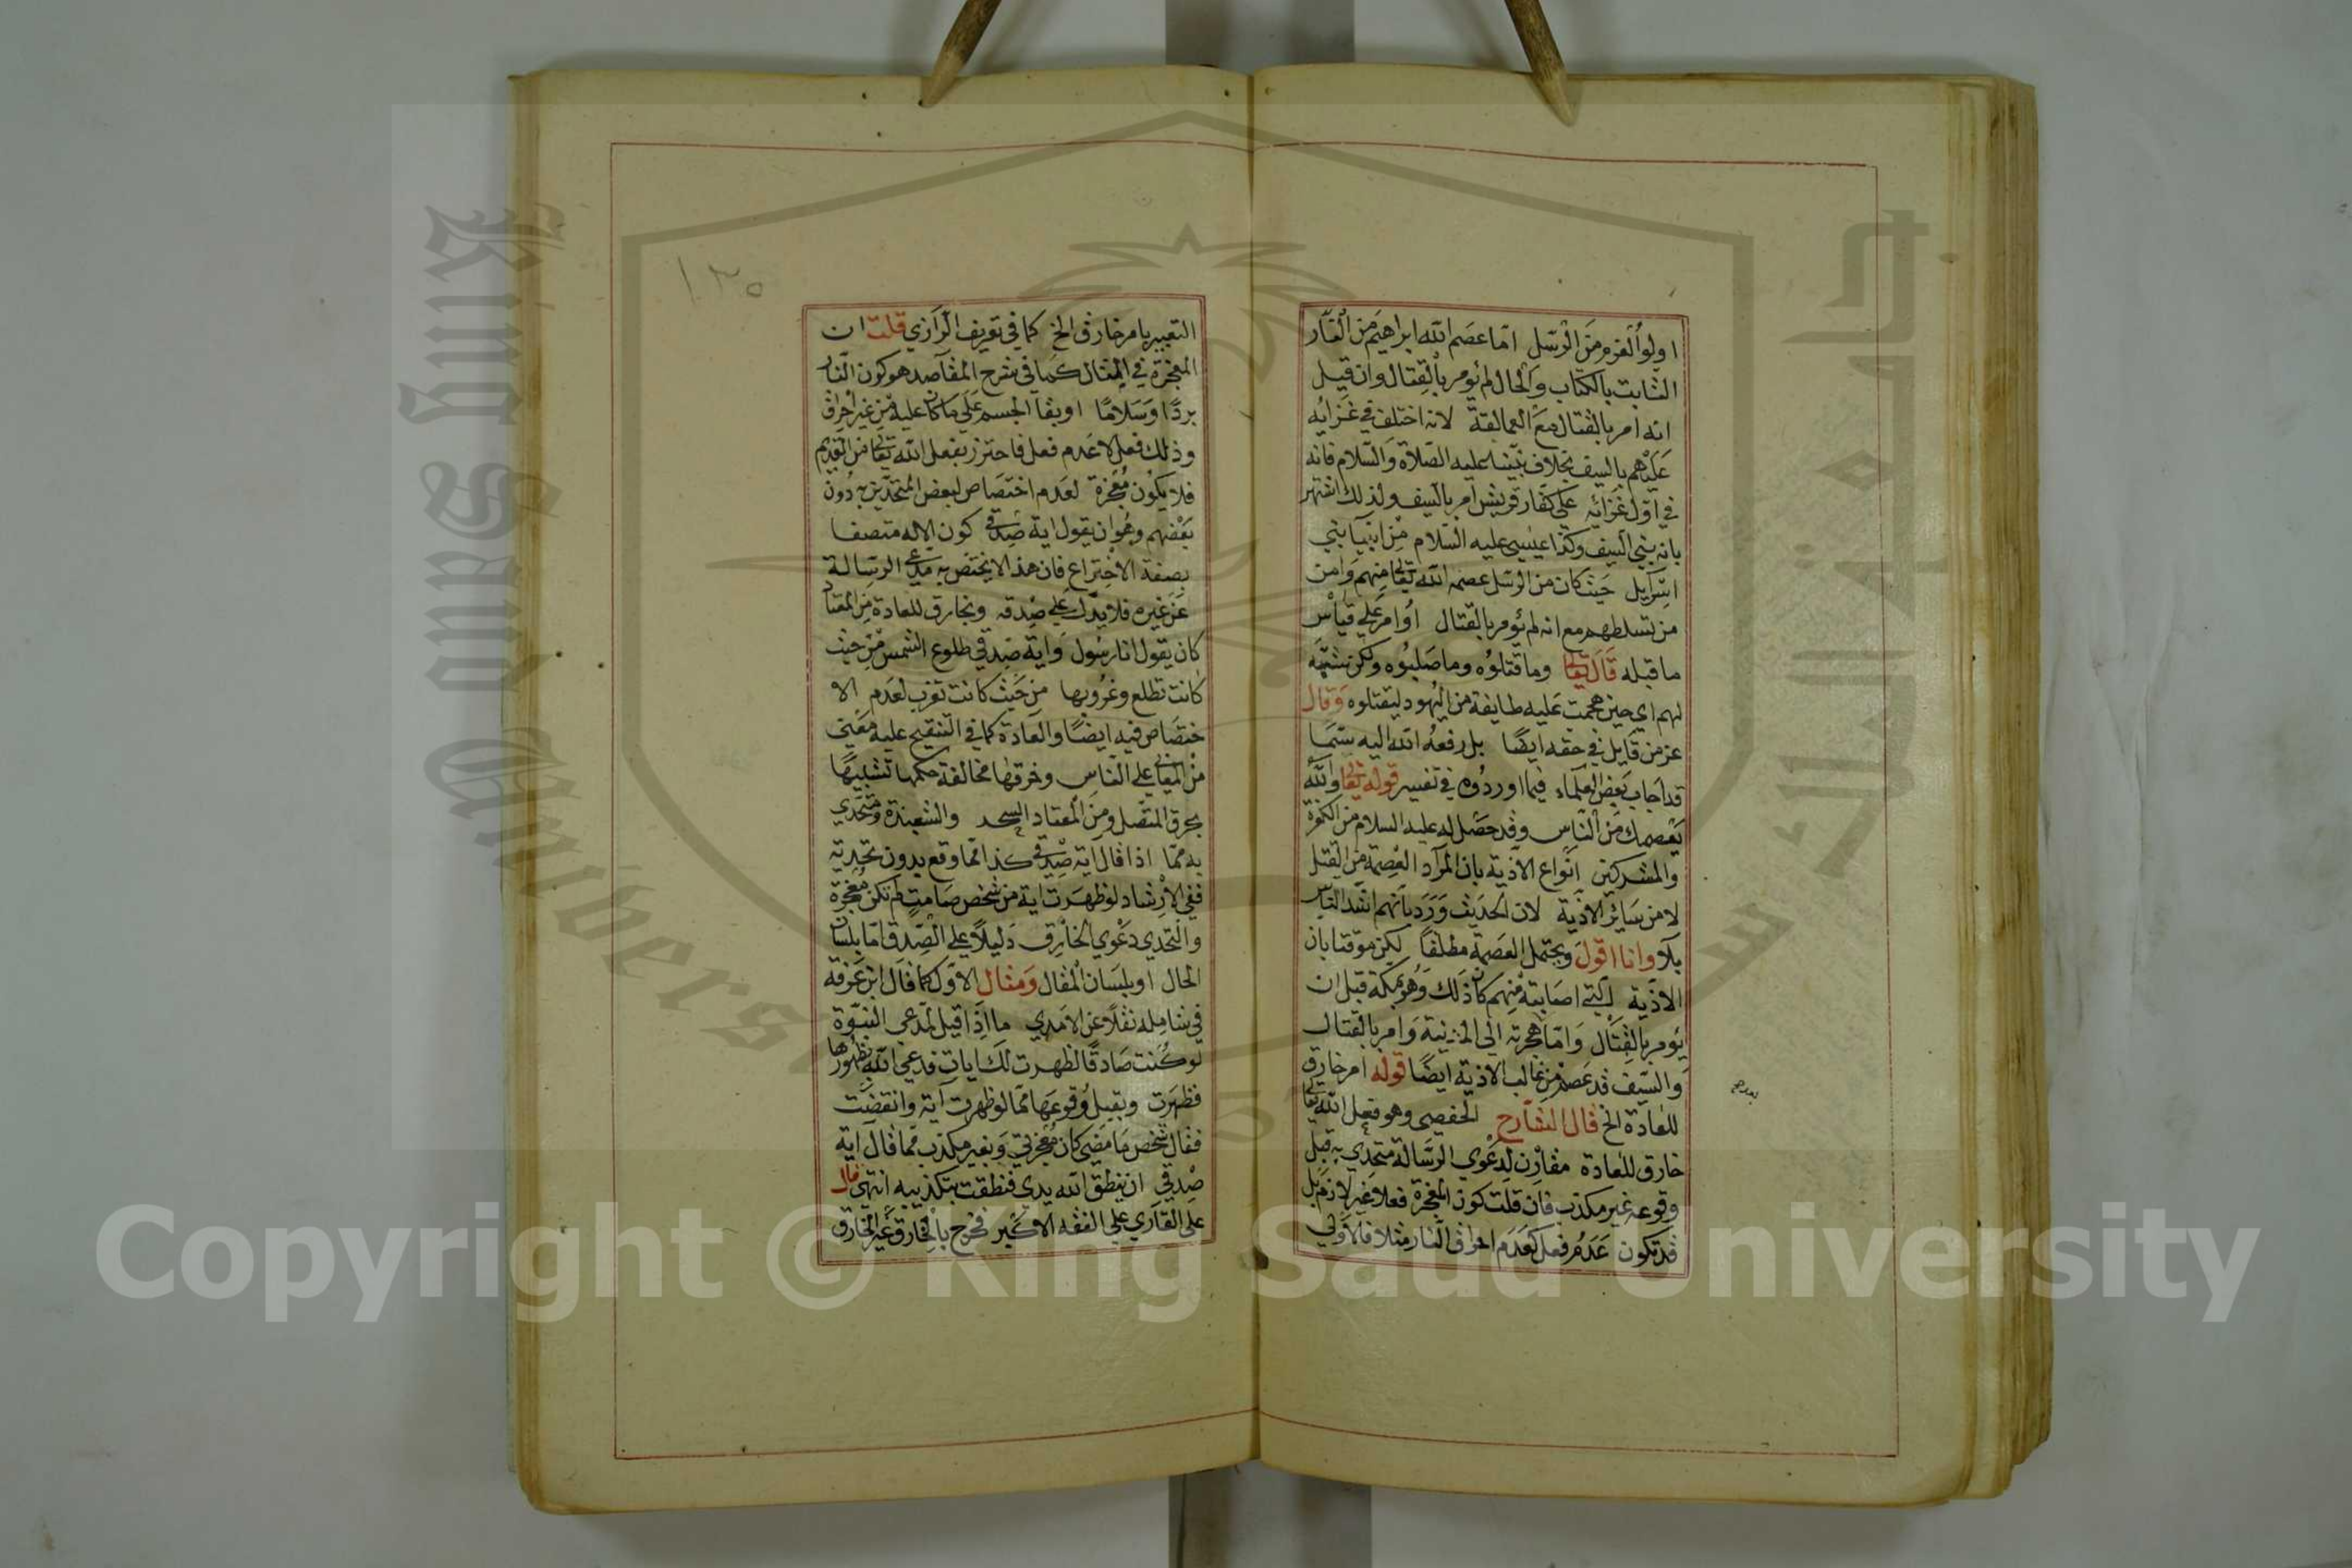 اولوا العزم من الرسل اما عصم الله ابراهيم من النار
الثابت بالكتاب والحال لم يؤمر بالقتال وان قيل
انه امر بالقتال مع العمالقة لانه اختلف في غزائه
عليهم بالسيف بخلاف نبينا عليه الصلاة والسلام فانه
في اول غزائه على كفار قريش امر بالسيف ولذلك اشتهر
بانه نبي السيف وكذا عيسى عليه السلام من انبيا بني
اسرآيل حيث كان من الرسل عصمه الله تعالى منهم وامن
من تسلطهم مع انه لم يؤمر بالقتال او امر على قياس
ما قبله قال تعالى وما قتلوه وما صلبوه ولكن شبه
لهم اي حين هجمت عليه طايفة من اليهود ليقتلوه وقال
عز من قايل في حقه ايضا بل رفعه الله اليه سيما
قد اجاب بعض العلماء فيما اوردوه في تفسير قوله تعالى والله
يعصمك من الناس وقد حصل له عليه السلام من الكفرة
والمشركين انواع الاذية بان المراد العصمة من القتل
لا من سائر الاذية لان الحديث ورد بانهم اشد الناس
بلآ وانا اقول ويحتمل العصمة مطلقا لكن موقتا بان
الاذية التي اصابته منهم كان ذلك وهو بمكة قبل ان
يؤمر بالقتال واما هجرته الى المدينة وامر بالقتال
والسيف قد عصم من غالب الاذية ايضا قوله امر خارق
للعادة الخ قال الشارح الحفصي وهو فعل الله تعالى
خارق للعادة مقارن لدعوى الرسالة متحدي به قبل
وقوعه غير مكذب فان قلت كون المعجزة فعلا غير لازم بل
قد تكون عدم فعل كعدم احراق النار مثلا فالاولى
١٣٥
التعبير بامر خارق الخ كما في تعريف الرازي قلت ان
المعجزة في المثال كما في شرح المقاصد هو كون النار
بردا وسلاما او بقا الجسم على ما كان عليه من غير احراق
وذلك فعل لا عدم فعل فاحترز بفعل الله تعالى من القديم
فلا يكون معجزة لعدم اختصاص لبعض المتحدين به دون
بعضهم وهو ان يقول اية صدقي كون الاله متصفا
بصفة الاختراع فان هذا لا يختص به مدعي الرسالة
عن غيره فلا يدل على صدقه وبخارق للعادة من المعتاد
كان يقول انا رسول واية صدقي طلوع الشمس من حيث
كانت تطلع وغروبها من حيث كانت تغرب لعدم الا
ختصاص فيه ايضا والعادة كما في التنقيح عليه معنى
من المعاني على الناس وخرقها مخالفة حكمها تشبيها
بخرق المتصل ومن المعتاد السحر والشعبذة ومتحدي
به مما اذا قال اية صدقي كذا مما وقع بدون تحديه
ففي الارشاد لو ظهرت اية من شخص صامت لم تكن معجزة
والتحدي دعوى الخارق دليلا على الصدق اما بلسان
الحال او بلسان المقال ومثال الاول كما قال ابن عرفة
في شامله نقلا عن الامدي ما اذا قيل لمدعي النبوة
لو كنت صادقا لظهرت لك ايات فدعى الله بظهورها
فظهرت وبقبل وقوعها مما لو ظهرت آية وانقضت
فقال شخص ما مضى كان معجزتي وبغير مكذب مما قال اية
صدقي ان ينطق الله يدي فنطقت بتكذيبه انتهى قال
على القاري على الفقه الاكبر فخرج بالخارق غير الخارق
King Saud University
Copyright © King Saud University